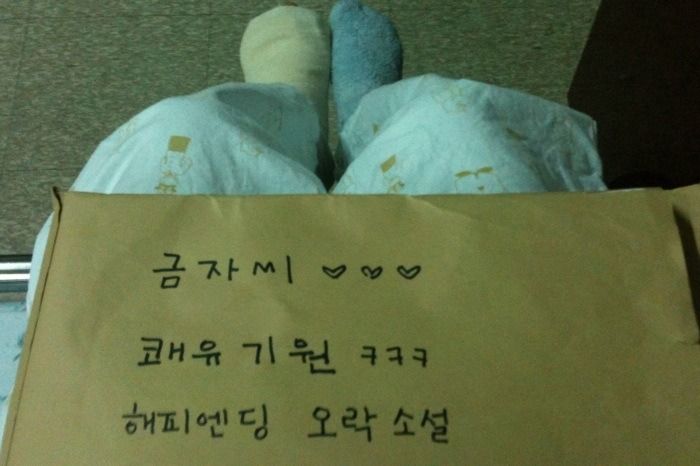 금자씨 ♡♡♡
쾌유기원 ㅋㅋㅋ
해피엔딩 오락소설